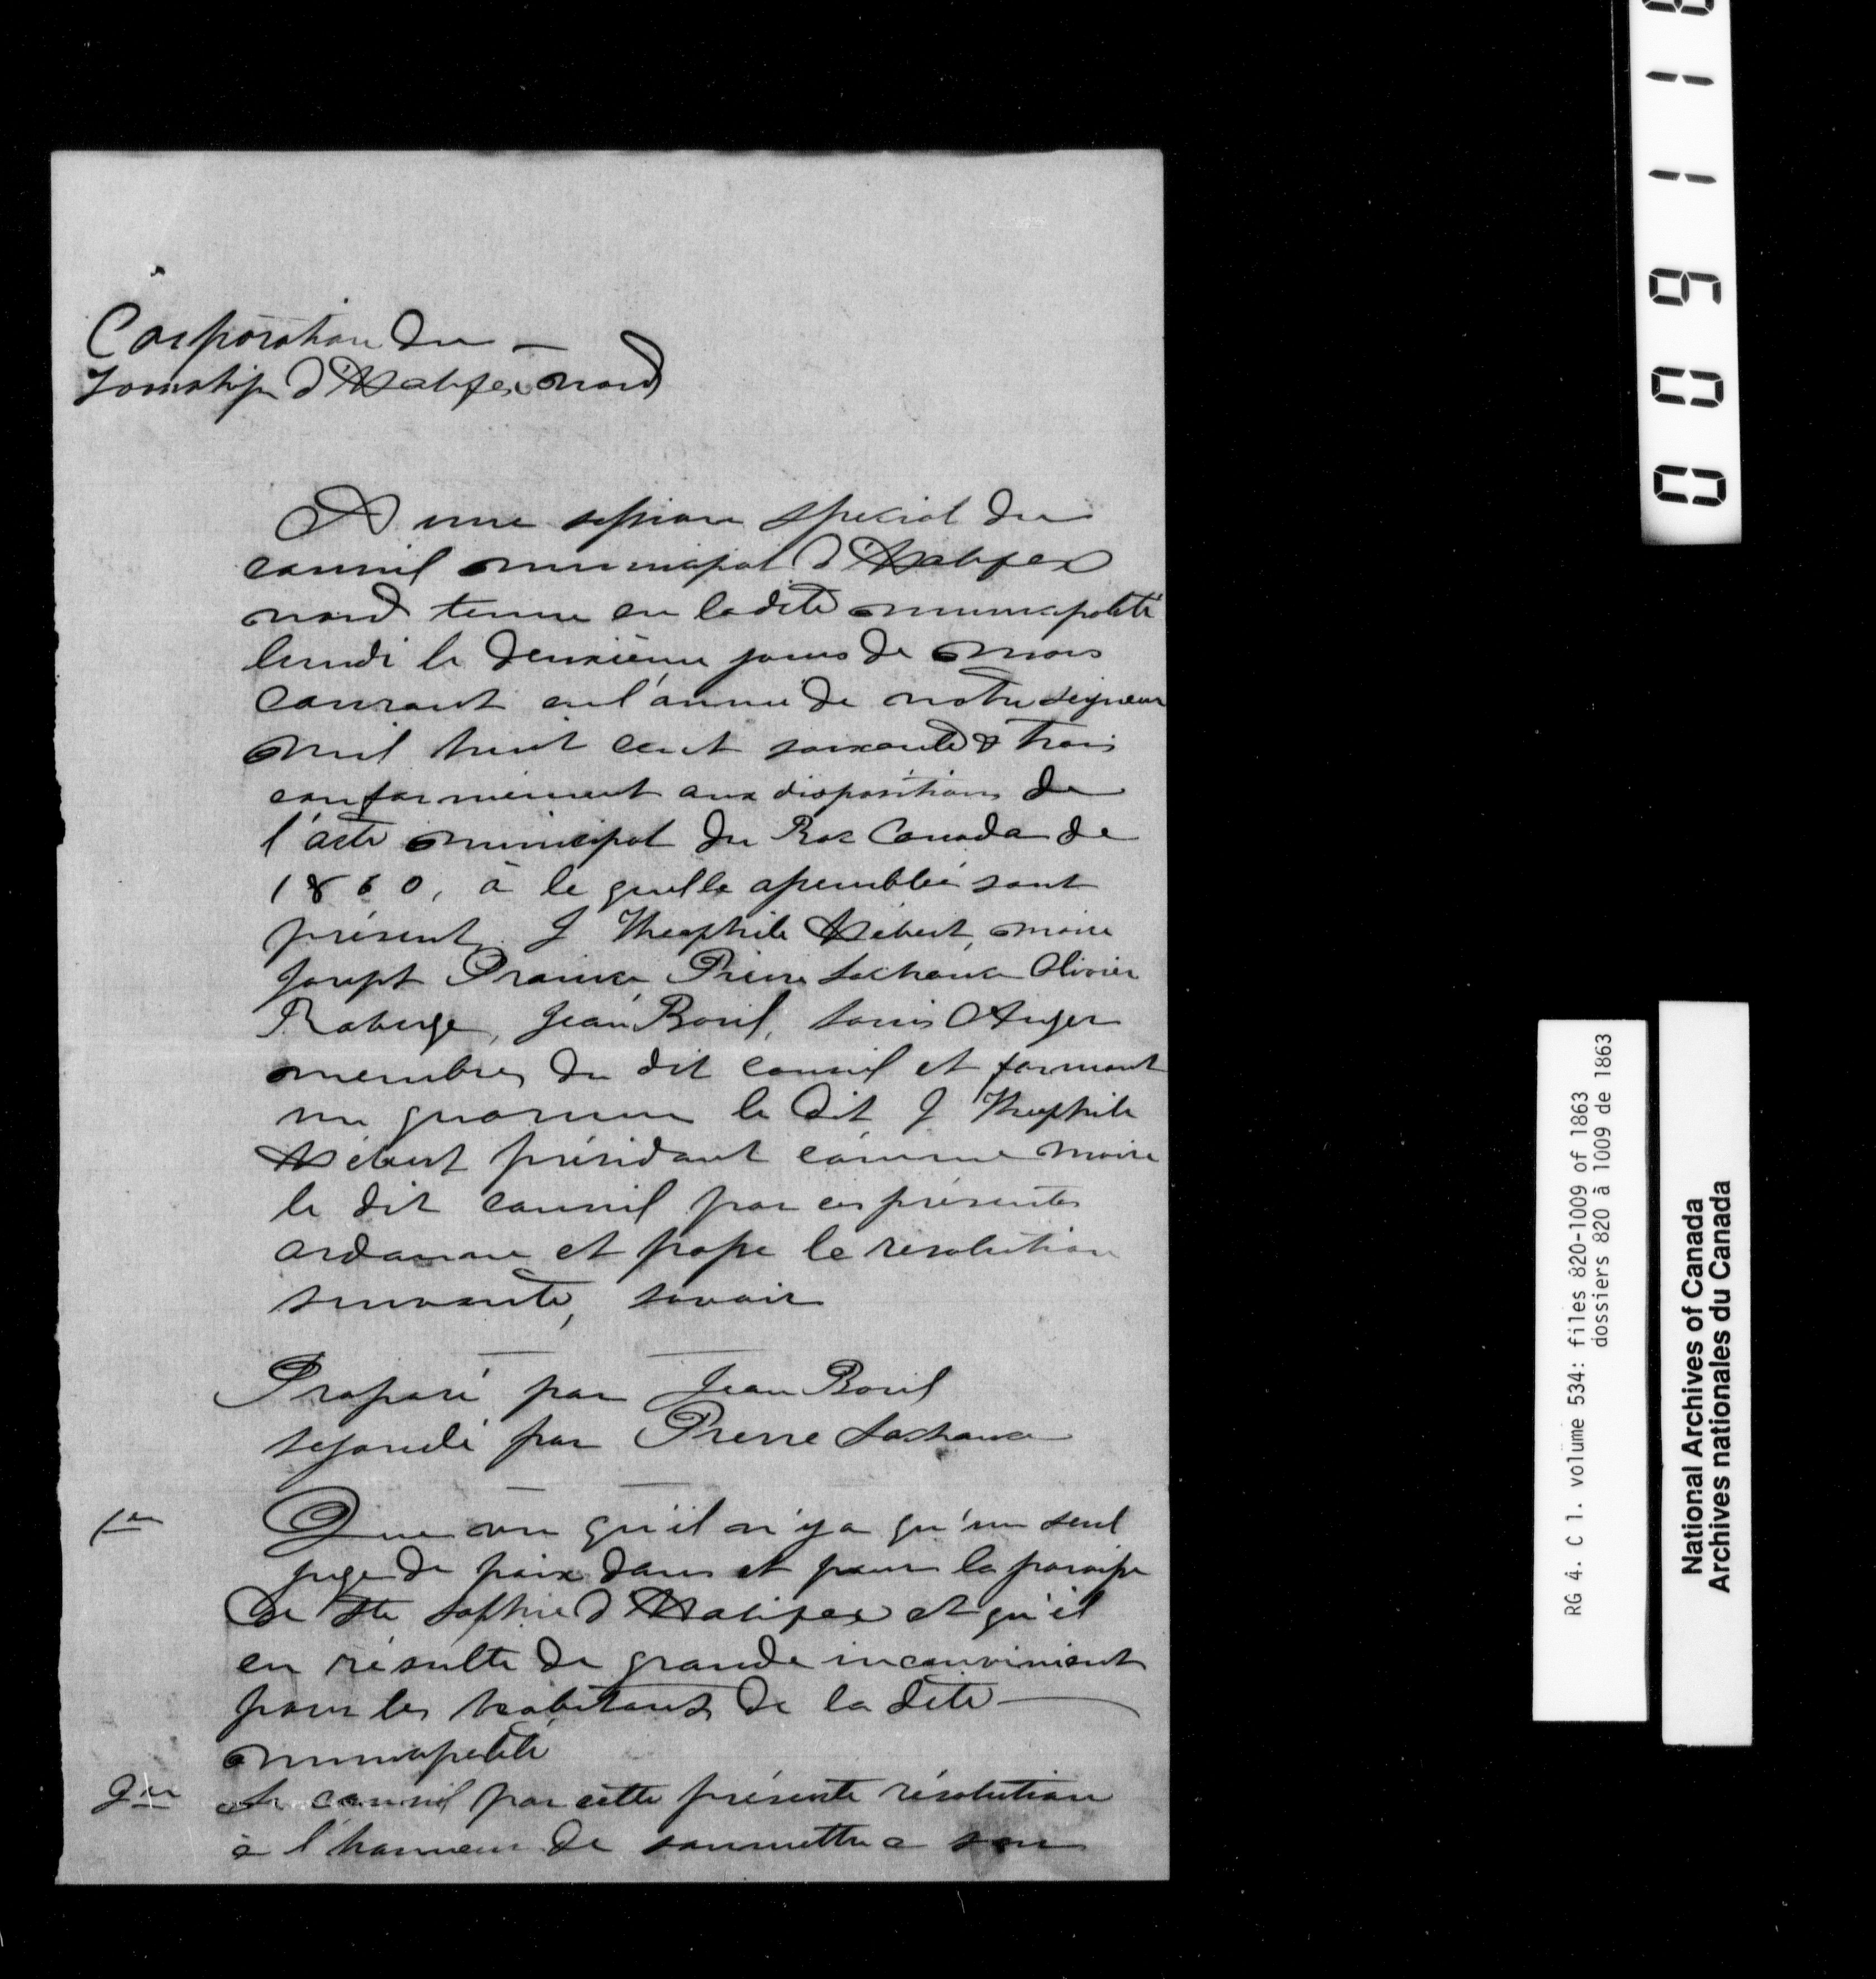 Corporation du
Township d'Halifax nord
A une session special du
conseil municipal d'Halifax
nord tenue en ladite municipalité
lundi le deuxième jour de mois
courant en l'année de notre seigneur
mil huit cent soixante & trois
conformément aux dispositions de
l'acte municipal du Bas Canada de
1860, à la quelle assemblée sont
présent J Theophile Hébert, maire
Joseph Prairie, Pierre Lachance Olivier
Roberge, Jean Boul, Louis Anger
membres du dit conseil et formant
un quorum le dit J Theophile
Hébert présidant comme maire
le dit conseil par ces présentes
ordonne et passe la resolution
suivante, savoir
Proposé par Jean Boul
segondé par Pierre Lachance
1er Que vu qu'il n'y a qu'un seul
juge de paix dans et pour la paroisse
de Ste Sophie d'Halifax et qu'il
en résulte de grande inconvénient
pour les habitants de la dite
municipalité
2em Le conseil par cette présente résolution
à l'honneur de soumettre a son
009118
RG 4. C 1. volume 534: files 820-1009 of 1863
dossiers 820 à 1009 de 1863
National Archives of Canada
Archives nationales du Canada